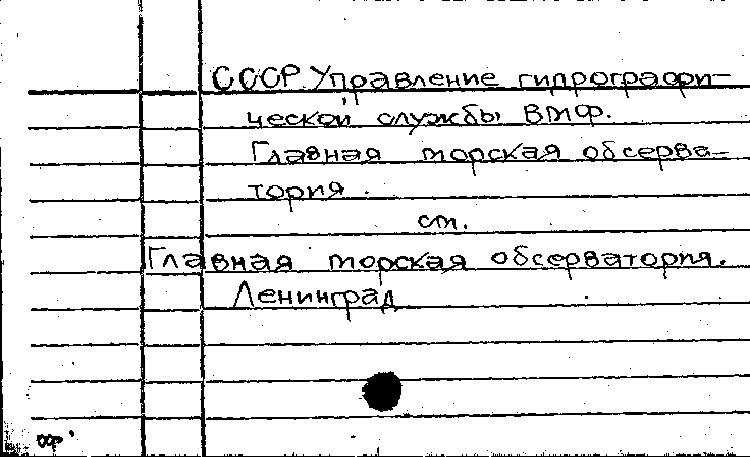 СССР. Управление гидрографи-
ческой службы ВМФ.
Главная морская обсерва-
тория.
см.
Главная морская обсерватория.
Ленинград